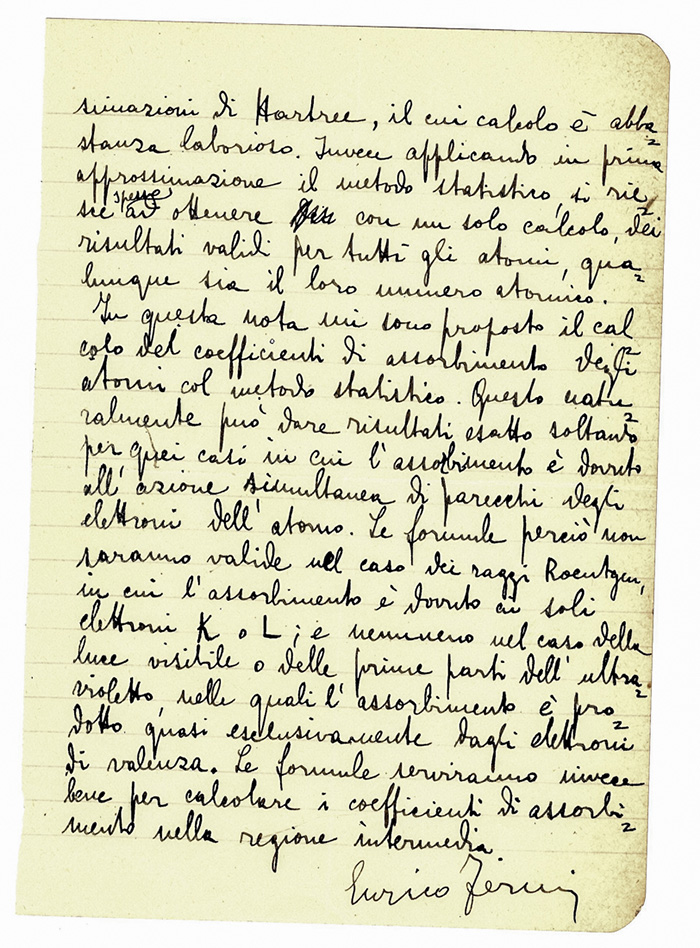 simazioni di Hartree, il cui calcolo è abba=
stanza laborioso. Invece applicando in prima
approssimazione il metodo statistico, si rie=
spesso
sce ad ottenere con un solo calcolo, dei
risultati validi per tutti gli atomi, qua=
lunque sia il loro numero atomico.
In questa nota mi sono proposto il cal
colo dei coefficienti di assorbimento degli
atomi col metodo statistico. Questo natu=
ralmente può dare risultati esatto soltanto
per quei casi in cui l'assorbimento è dovuto
all'azione simultanea di parecchi degli
elettroni dell'atomo. Le formule perciò non
saranno valide nel caso dei raggi Roentgen,
in cui l'assorbimento è dovuto ai soli
elettroni K o L; e nemmeno nel caso della
luce visibile o delle prime parti dell'ultra=
violetto, nelle quali l'assorbimento è pro=
dotto quasi esclusivamente dagli elettroni
di valenza. Le formule serviranno invece
bene per calcolare i coefficienti di assorbi=
mento nella regione intermedia
Enrico Fermi